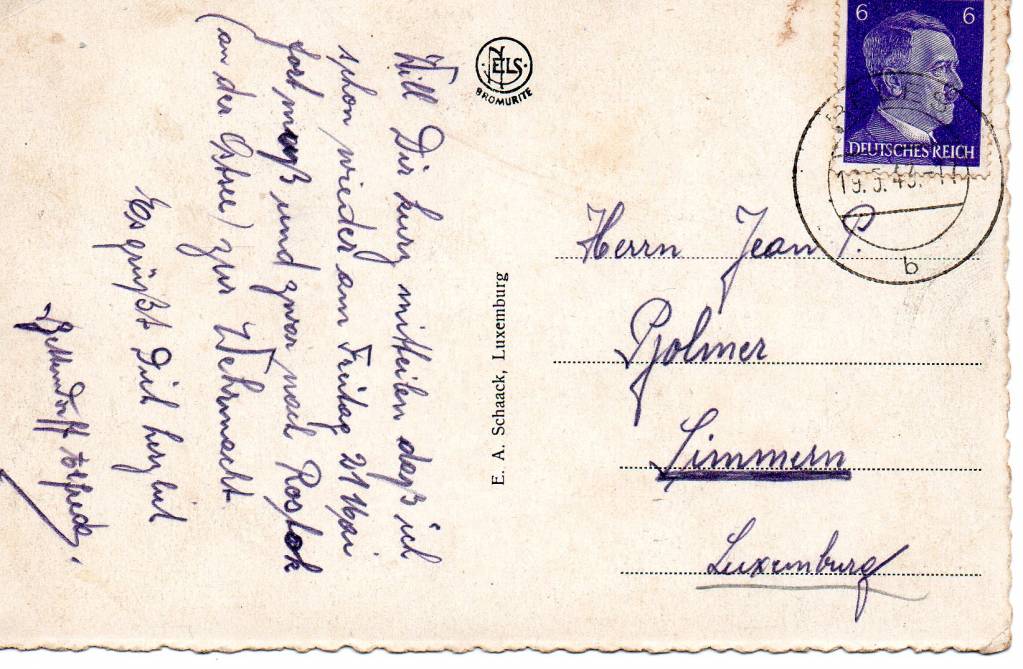 Will Dir kurz mitteilen daß ich
schon wieder am Freitag 21 Mai
fort muß und zwar nach Rostok
(an der Ostsee) zur Wehrmacht.
Es grüßt Dich herzlich
Bettendorff
NELS
BROMURITE
E. A. Schaack, Luxemburg
6 6
DEUTSCHES REICH
19.5.43.
b
Herrn Jean P.
Bolmer
Simmern
Luxemburg